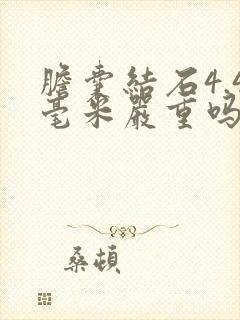 膽囊結石4.4
毫米嚴重嗎
桑頓